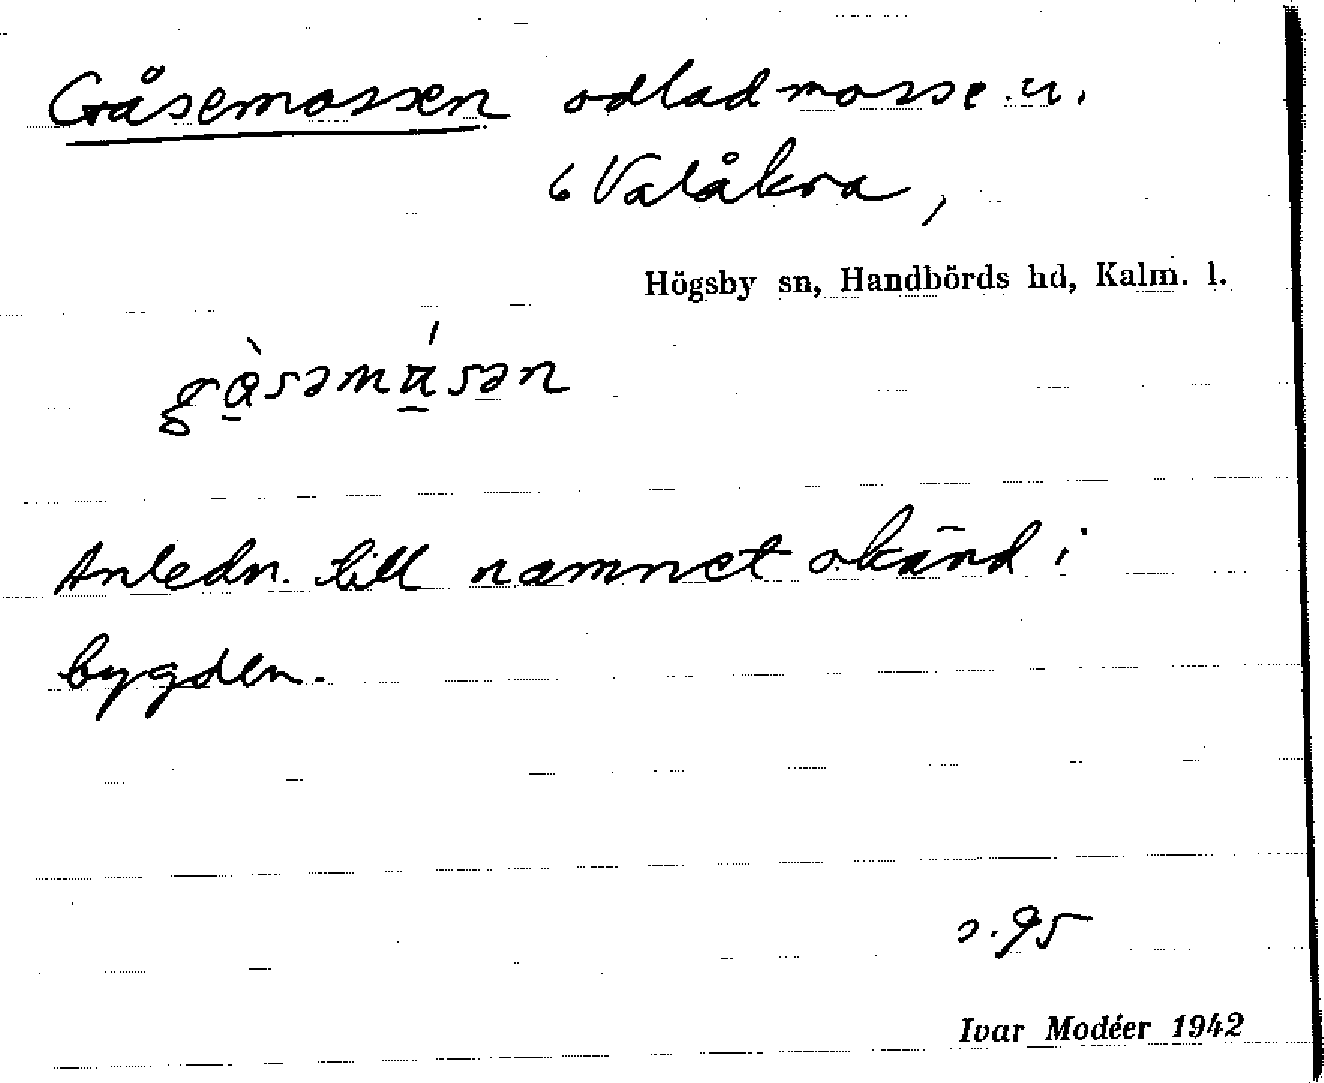 Gåsemossen odlad mosse u.
6 Valåkra,
Högsby sn, Handbörds hd, Kalm. l.
Anledn. till namnet okänd i
bygden.
s. 95
Ivar Modéer 1942